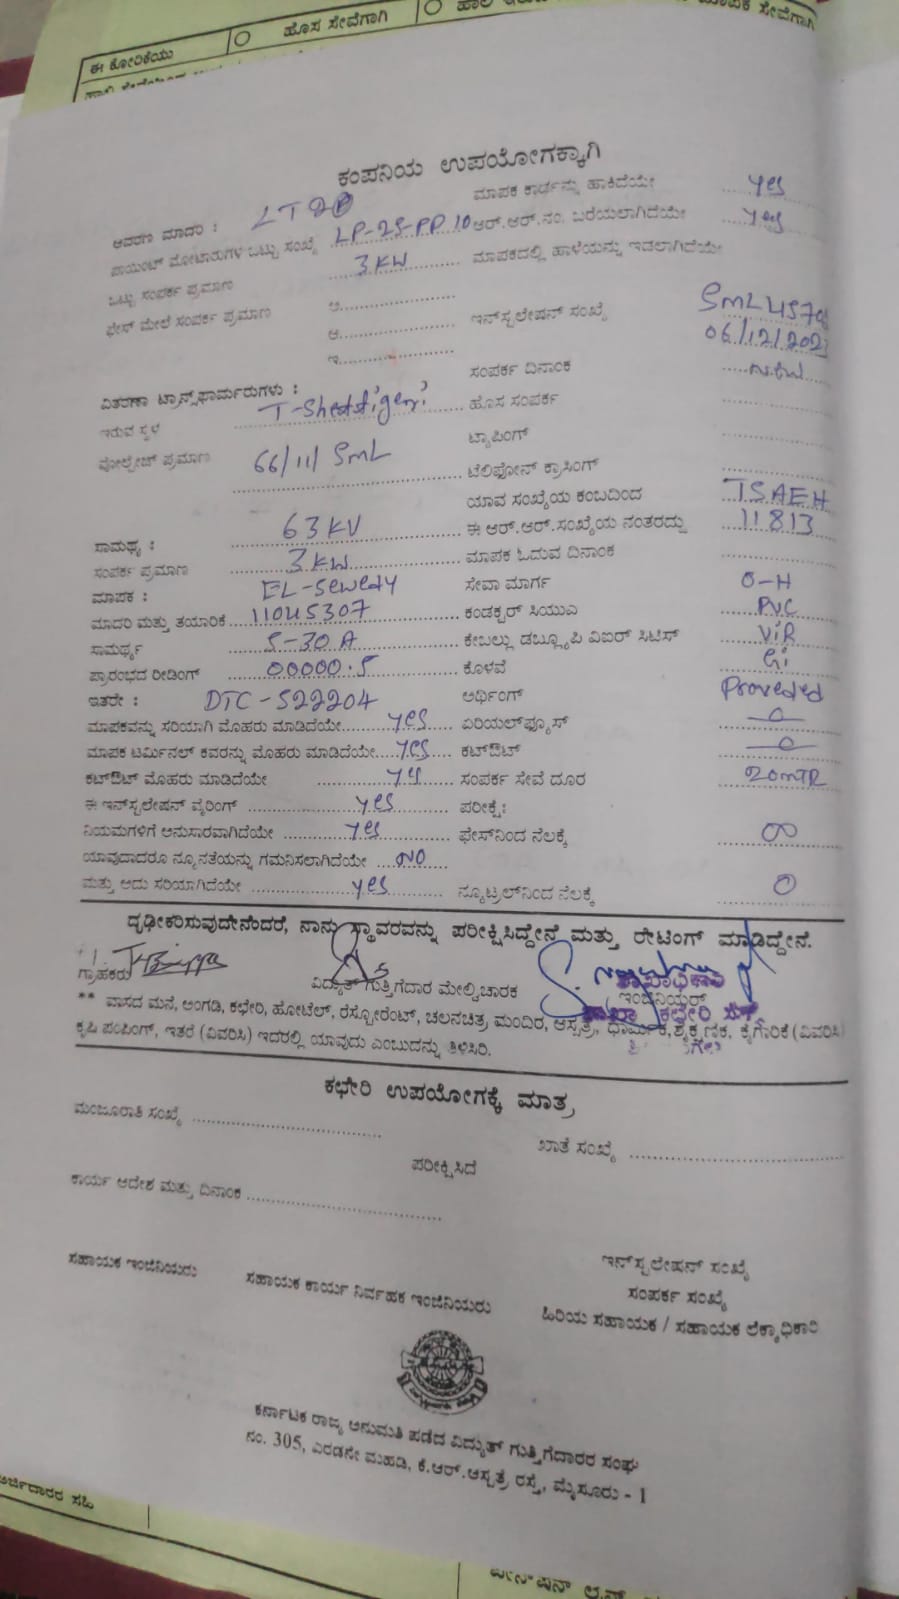 ಈ ಕೋರಿಕೆಯು ಹೊಸ ಸೇವೆಗಾಗಿ ಮಾಪಕ ಸೇವೆಗಾಗಿ
ಕಂಪನಿಯ ಉಪಯೋಗಕ್ಕಾಗಿ
ಆವರಣ ಮಾದರಿ : LT2 ಮಾಪಕ ಕಾರ್ಡನ್ನು ಹಾಕಿದೆಯೇ yes
ಪಾಯಿಂಟ್ ಮೋಟಾರುಗಳ ಒಟ್ಟು ಸಂಖ್ಯೆ LP-2S-PP 10 ಆರ್.ಆರ್.ನಂ. ಬರೆಯಲಾಗಿದೆಯೇ yes
ಒಟ್ಟು ಸಂಪರ್ಕ ಪ್ರಮಾಣ 3KW ಮಾಪಕದಲ್ಲಿ ಹಾಳೆಯನ್ನು ಇಡಲಾಗಿದೆಯೇ
ಫೇಸ್ ಮೇಲೆ ಸಂಪರ್ಕ ಪ್ರಮಾಣ ಅ
ಆ ಇನ್‌ಸ್ಟಲೇಷನ್ ಸಂಖ್ಯೆ
ಇ 06/12/2021
ವಿತರಣಾ ಟ್ರಾನ್ಸ್‌ಫಾರ್ಮರುಗಳು : ಸಂಪರ್ಕ ದಿನಾಂಕ
ಇರುವ ಸ್ಥಳ T-Shettigeri ಹೊಸ ಸಂಪರ್ಕ
ವೋಲ್ಟೇಜ್ ಪ್ರಮಾಣ 66/11/SML ಟ್ಯಾಪಿಂಗ್
ಟೆಲಿಫೋನ್ ಕ್ರಾಸಿಂಗ್
ಯಾವ ಸಂಖ್ಯೆಯ ಕಂಬದಿಂದ TSAEH
ಸಾಮರ್ಥ್ಯ : 63KV ಈ ಆರ್.ಆರ್.ಸಂಖ್ಯೆಯ ನಂತರದ್ದು 11813
ಸಂಪರ್ಕ ಪ್ರಮಾಣ 3KW ಮಾಪಕ ಓದುವ ದಿನಾಂಕ
ಮಾಪಕ : EL-Sewedy ಸೇವಾ ಮಾರ್ಗ O-H
ಮಾದರಿ ಮತ್ತು ತಯಾರಿಕೆ 11045307 ಕಂಡಕ್ಟರ್ ಸಿಯುಎ PVC
ಸಾಮರ್ಥ್ಯ 5-30A ಕೇಬಲ್ಲು ಡಬ್ಲ್ಯೂಪಿ ವಿಐರ್ ಸಿಟಿಸ್ ViR
ಪ್ರಾರಂಭದ ರೀಡಿಂಗ್ 00000.5 ಕೊಳವೆ Gi
ಇತರೇ : DTC-522204 ಅರ್ಥಿಂಗ್ Proveded
ಮಾಪಕವನ್ನು ಸರಿಯಾಗಿ ಮೊಹರು ಮಾಡಿದೆಯೇ yes ಏರಿಯಲ್‌ಫ್ಯೂಸ್
ಮಾಪಕ ಟರ್ಮಿನಲ್ ಕವರನ್ನು ಮೊಹರು ಮಾಡಿದೆಯೇ yes ಕಟ್‌ಔಟ್
ಕಟ್‌ಔಟ್ ಮೊಹರು ಮಾಡಿದೆಯೇ yes ಸಂಪರ್ಕ ಸೇವೆ ದೂರ 20mTR
ಈ ಇನ್‌ಸ್ಟಲೇಷನ್ ವೈರಿಂಗ್ yes ಪರೀಕ್ಷೆ:
ನಿಯಮಗಳಿಗೆ ಅನುಸಾರವಾಗಿದೆಯೇ yes ಫೇಸ್‌ನಿಂದ ನೆಲಕ್ಕೆ ∞
ಯಾವುದಾದರೂ ನ್ಯೂನತೆಯನ್ನು ಗಮನಿಸಲಾಗಿದೆಯೇ NO
ಮತ್ತು ಅದು ಸರಿಯಾಗಿದೆಯೇ yes ನ್ಯೂಟ್ರಲ್‌ನಿಂದ ನೆಲಕ್ಕೆ 0
ದೃಢೀಕರಿಸುವುದೇನೆಂದರೆ, ನಾನು ಸ್ಥಾವರವನ್ನು ಪರೀಕ್ಷಿಸಿದ್ದೇನೆ ಮತ್ತು ರೇಟಿಂಗ್ ಮಾಡಿದ್ದೇನೆ.
ಗ್ರಾಹಕರು ವಿದ್ಯುತ್ ಗುತ್ತಿಗೆದಾರ ಮೇಲ್ವಿಚಾರಕ ಇಂಜಿನಿಯರ್
** ವಾಸದ ಮನೆ, ಅಂಗಡಿ, ಕಛೇರಿ, ಹೋಟೆಲ್, ರೆಸ್ಟೋರೆಂಟ್, ಚಲನಚಿತ್ರ ಮಂದಿರ, ಆಸ್ಪತ್ರೆ, ಧಾರ್ಮಿಕ,ಶೈಕ್ಷಣಿಕ, ಕೈಗಾರಿಕೆ (ವಿವರಿಸಿ)
ಕೃಷಿ ಪಂಪಿಂಗ್, ಇತರೆ (ವಿವರಿಸಿ) ಇದರಲ್ಲಿ ಯಾವುದು ಎಂಬುದನ್ನು ತಿಳಿಸಿರಿ.
ಕಛೇರಿ ಉಪಯೋಗಕ್ಕೆ ಮಾತ್ರ
ಮಂಜೂರಾತಿ ಸಂಖ್ಯೆ ಖಾತೆ ಸಂಖ್ಯೆ
ಪರೀಕ್ಷಿಸಿದೆ
ಕಾರ್ಯ ಆದೇಶ ಮತ್ತು ದಿನಾಂಕ
ಇನ್‌ಸ್ಟಲೇಷನ್ ಸಂಖ್ಯೆ
ಸಂಪರ್ಕ ಸಂಖ್ಯೆ
ಸಹಾಯಕ ಇಂಜಿನಿಯರು ಸಹಾಯಕ ಕಾರ್ಯ ನಿರ್ವಾಹಕ ಇಂಜಿನಿಯರು ಹಿರಿಯ ಸಹಾಯಕ / ಸಹಾಯಕ ಲೆಕ್ಕಾಧಿಕಾರಿ
ಕರ್ನಾಟಕ ರಾಜ್ಯ ಅನುಮತಿ ಪಡೆದ ವಿದ್ಯುತ್ ಗುತ್ತಿಗೆದಾರರ ಸಂಘ
ನಂ. 305, ಎರಡನೇ ಮಹಡಿ, ಕೆ.ಆರ್.ಆಸ್ಪತ್ರೆ ರಸ್ತೆ, ಮೈಸೂರು - 1
ಅರ್ಜಿದಾರರ ಸಹಿ